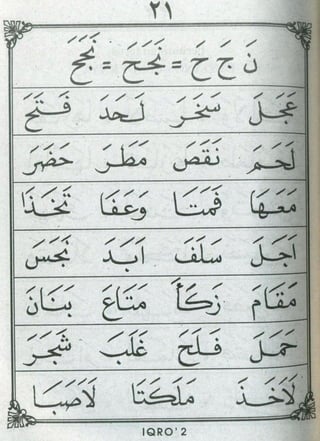 ٢١
نَ جَ حَ = نَجَحَ = نَجَحَ
عَجَلَ سَخَرَ لَحَدَ فَتَحَ
لَحَمَ نَقَصَ مَطَرَ حَضَرَ
مَعَهَا قَمَتَا وَعَفَا تَخَذَا
اَجَلَ سَلَفَ اَبَدَ نَجَسَ
مَقَامَ زَكَأَ مَتَاعَ بَنَانَ
حَمَلَ فَلَحَ غَلَبَ شَجَرَ
لَاَخَذَ مَلَكَتَا لَاَصَبَا
IQRO' 2